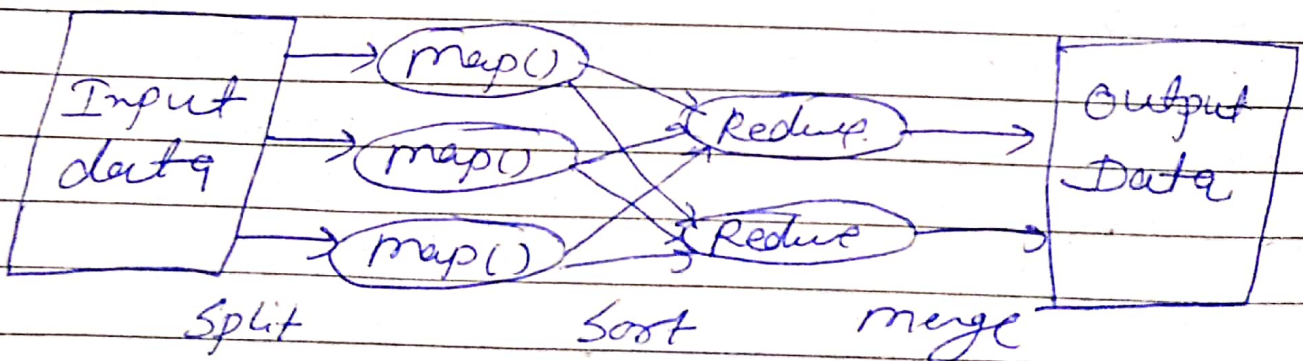 Input
data
map()
map()
map()
Reduce
Reduce
Output
Data
Split
Sort
merge